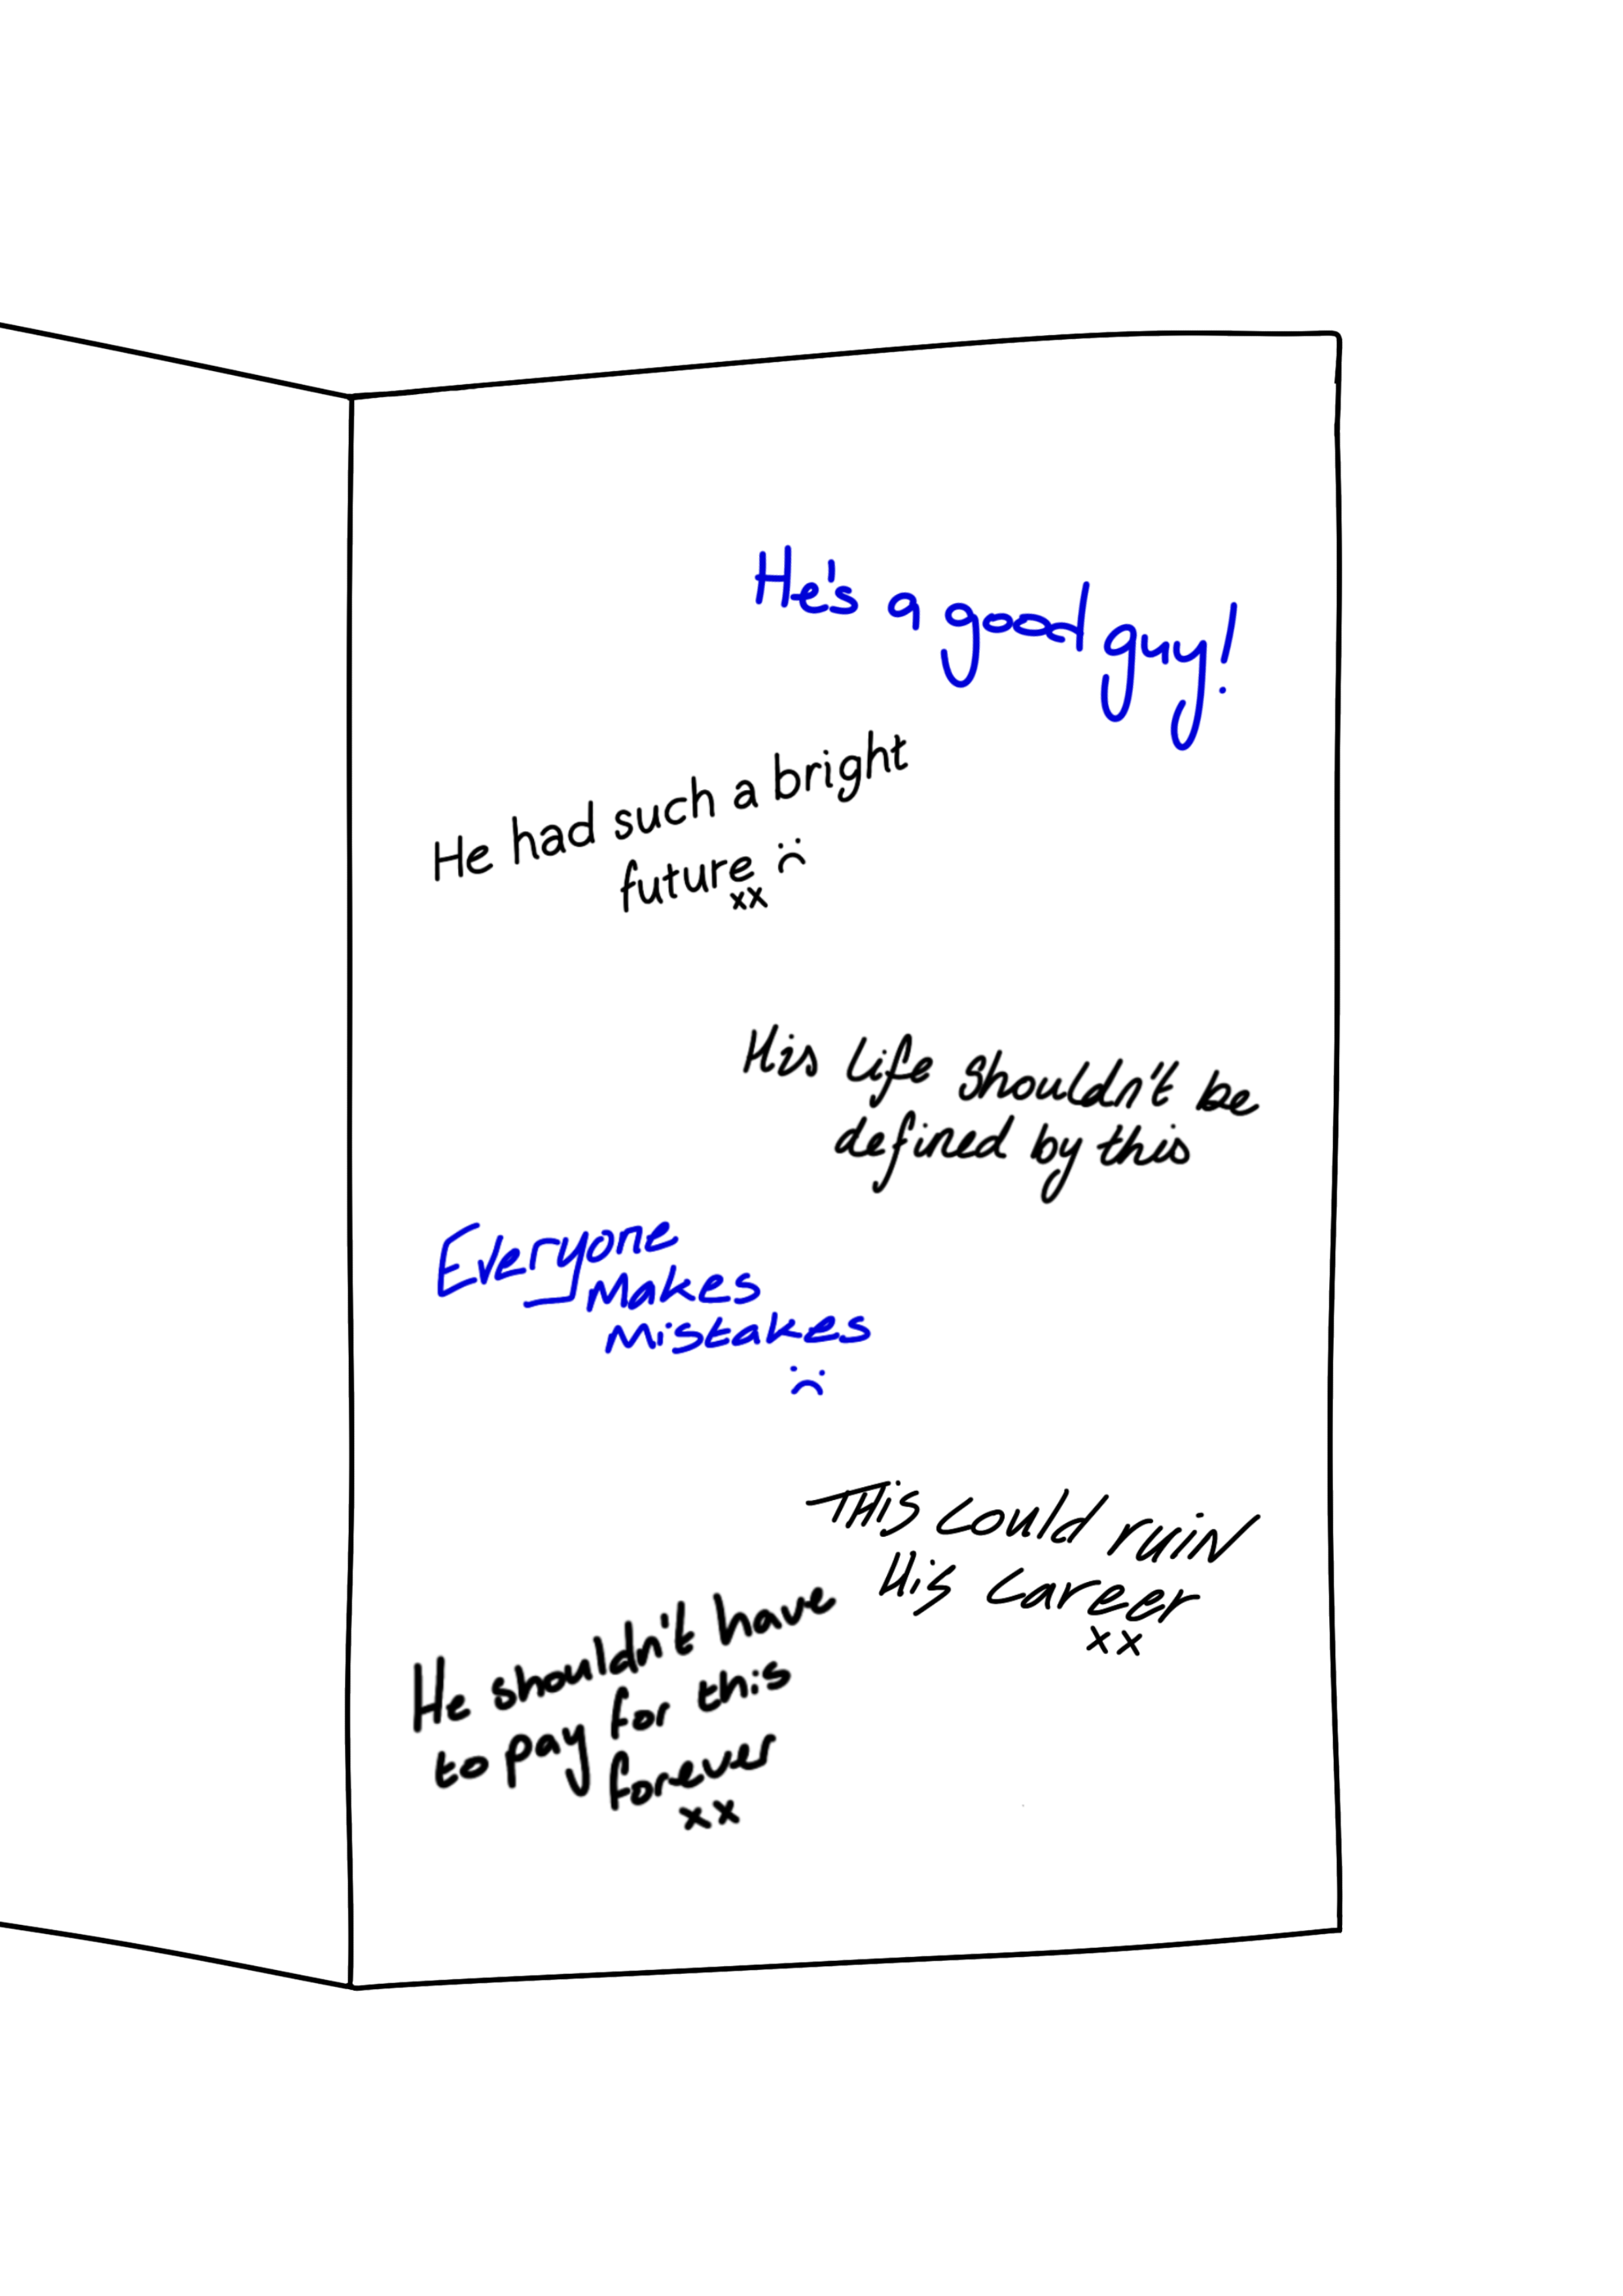 He's a good guy!
He had such a bright
future :(
xx
His life shouldn't be
defined by this
Everyone
makes
mistakes
:(
This could ruin
his career
xx
He shouldn't have
to pay for this
forever
xx